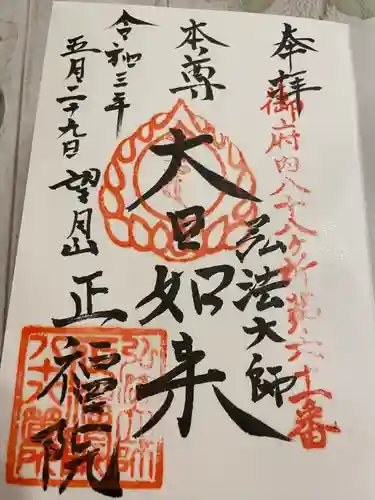 奉拝
御府内八十八ヶ所第六十一番
本尊
弘法大師
大日如来
令和三年
五月二十九日
望月山
正福院